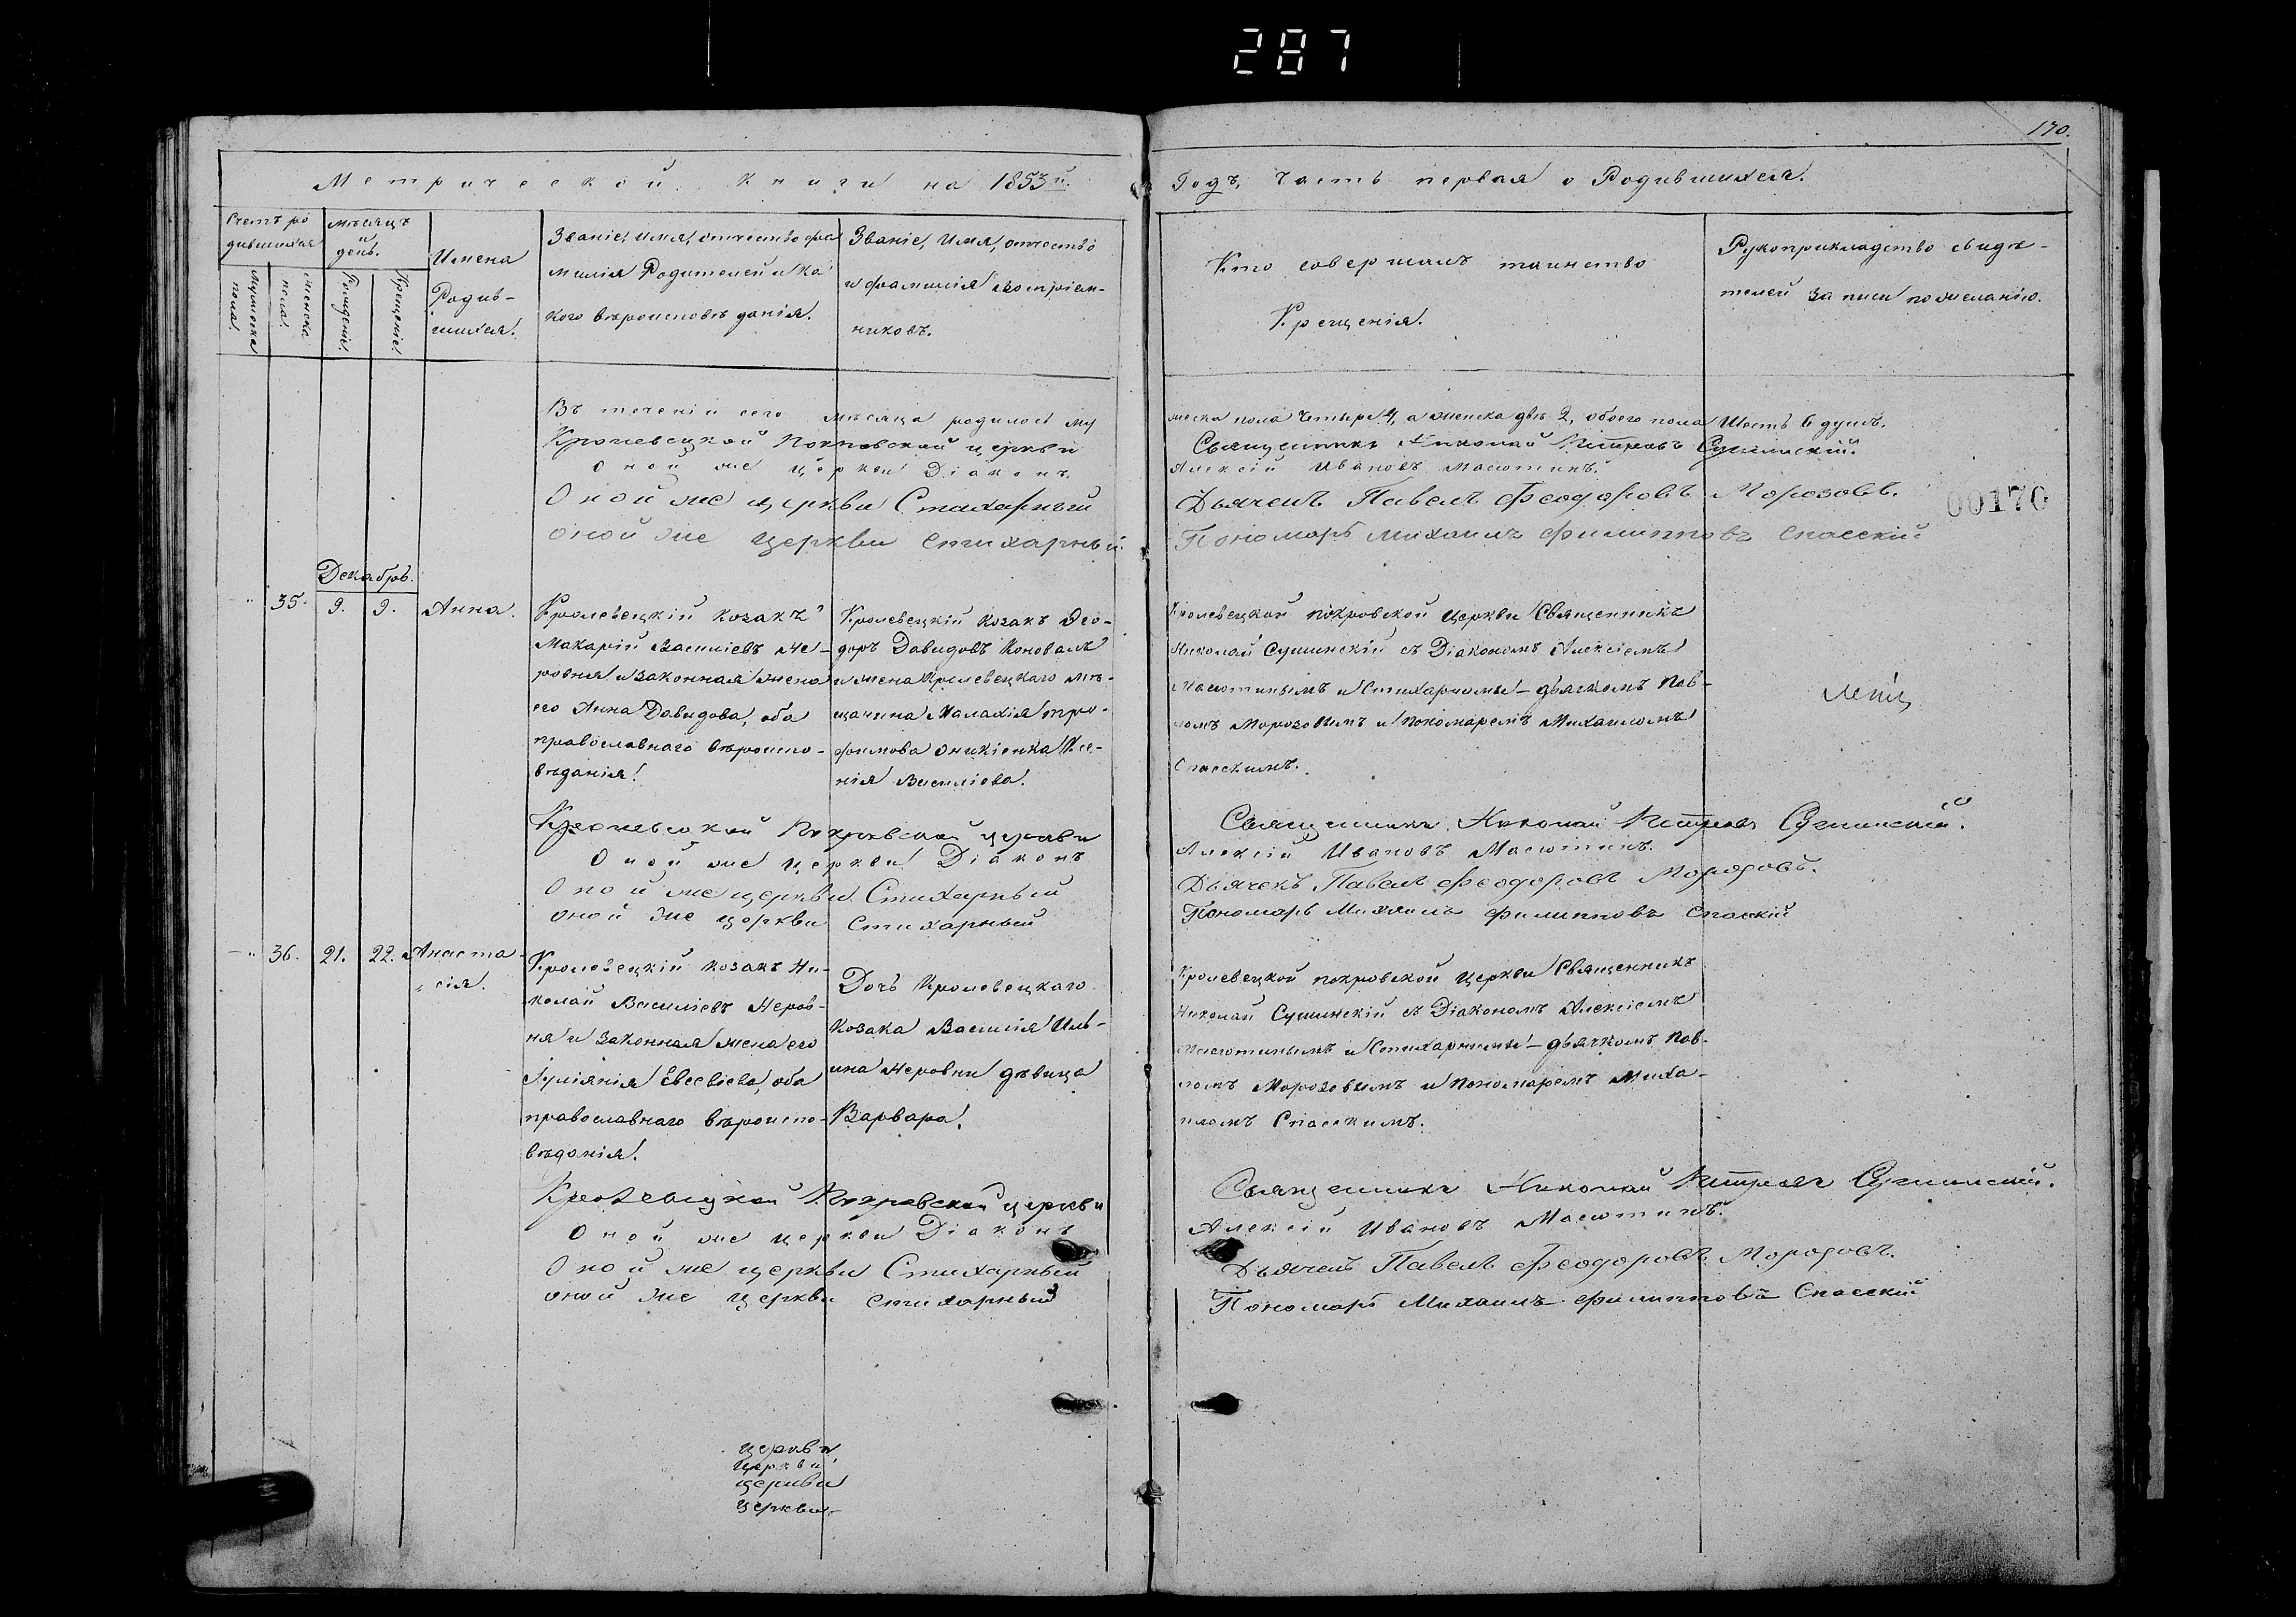 287
170.
Метрической книги на 1853й.
Годъ, часть первая о Родившихся.
Счетъ ро
дившихся
мѣсяцъ
и
день.
Мужеска
пола.
женска
пола.
Рожденіе
Крещеніе
Имена
Родив-
шихся.
Званіе, имя, отчество фа
милія Родителей и ка
кого вѣроисповѣданія.
Званіе, Имя, отчество
и фамилія воспріем-
никовъ.
Кто совершалъ таинство
Крещенія.
Рукоприкладство свидѣ-
телей записи по желанію.
Въ теченіи сего мѣсяца родилось му
жеска пола четыре 4, а женска двѣ 2, обоего пола Шесть 6 душъ.
Кролевецкой Покровской церкви
Священникъ Николай Петровъ Сушинскій.
Оной же церкви Діаконъ
Алексій Ивановъ Масютинъ.
Оной же церкви Стихарный
Дьячекъ Павелъ Феодоровъ Морозовъ.
00170
оной же церкви стихарный
Пономарь Михаилъ Филипповъ Спасскій
Декабрь.
-" 35. 9. 9. Анна.
Кролевецкій козакъ
Макарій Василіевъ Же-
ровня и законная жена
его Анна Давидова, оба
православнаго вѣроиспо-
вѣданія.
Кролевецкій козакъ Ѳео-
доръ Давидовъ Коновалъ
и жена Кролевецкаго мѣ-
щанина Малахія Тро-
фимова Оникіенка Ксе-
нія Василіева.
Кролевецкой покровской церкви Священникъ
Николай Сушинскій съ Діакономъ Алексіемъ
Масютинымъ и Стихарными - дьячкомъ Пав-
ломъ Морозовымъ и пономаремъ Михаиломъ
Спасскимъ.
Кролевецкой Покровской церкви
Священникъ Николай Петровъ Сушинскій.
Оной же церкви Діаконъ
Алексій Ивановъ Масютинъ.
Оной же церкви Стихарный
Дьячекъ Павелъ Феодоровъ Морозовъ.
оной же церкви стихарный
Пономарь Михаилъ Филипповъ Спаскій
-" 36. 21. 22. Анаста-
сія.
Кролевецкій козакъ Ни-
колай Василіевъ Жеров-
ня и законная жена его
Іуліянія Евсевіева, оба
православнаго вѣроиспо-
вѣданія.
Дочь Кролевецкаго
козака Василія Иль-
ина Жеровни дѣвица
Варвара.
Кролевецкой покровской церкви Священникъ
Николай Сушинскій съ Діакономъ Алексіемъ
Масютинымъ и Стихарными - дьячкомъ Пав-
ломъ Морозовымъ и пономаремъ Миха-
иломъ Спасскимъ.
Кролевецкой Покровской церкви
Священникъ Николай Петровъ Сушинскій.
Оной же церкви Діаконъ
Алексій Ивановъ Масютинъ.
Оной же церкви Стихарный
Дьячекъ Павелъ Феодоровъ Морозовъ.
оной же церкви стихарный
Пономарь Михаилъ Филипповъ Спасскій
церкви
церкви
церкви
церкви